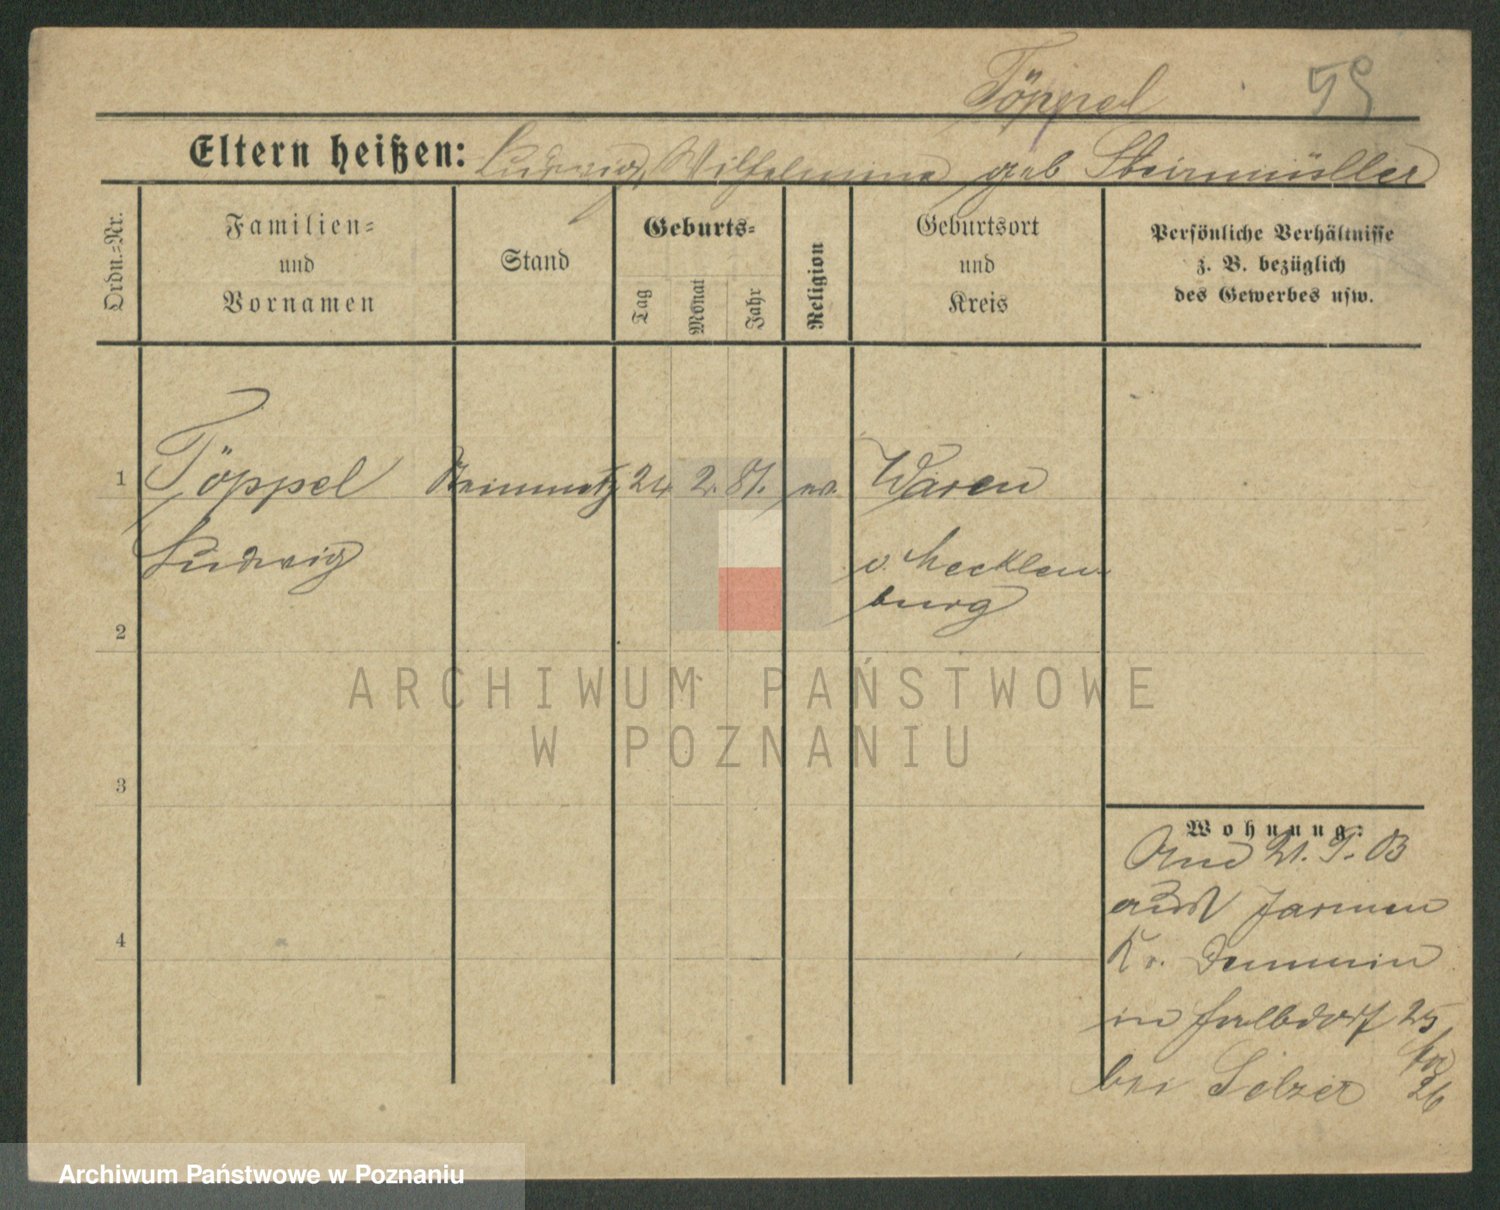 Töppel 59
Eltern heißen: Ludwig, Wilhelmine geb Steinmüller
Ordn.-Nr.
Familien-
und
Vornamen
Stand
Geburts-
Tag
Monat
Jahr
Religion
Geburtsort
und
Kreis
Persönliche Verhältnisse
z. B. bezüglich
des Gewerbes usw.
1 Töppel Steinmetz 24. 2. 81. ev. Waren
Ludwig
i. Mecklen-
burg
2
ARCHIWUM PAŃSTWOWE
W POZNANIU
3
Wohnung:
21. 9. 03
aus Jarmen
Kr. Demmin
in 25
bei Selzer
26
4
Archiwum Państwowe w Poznaniu